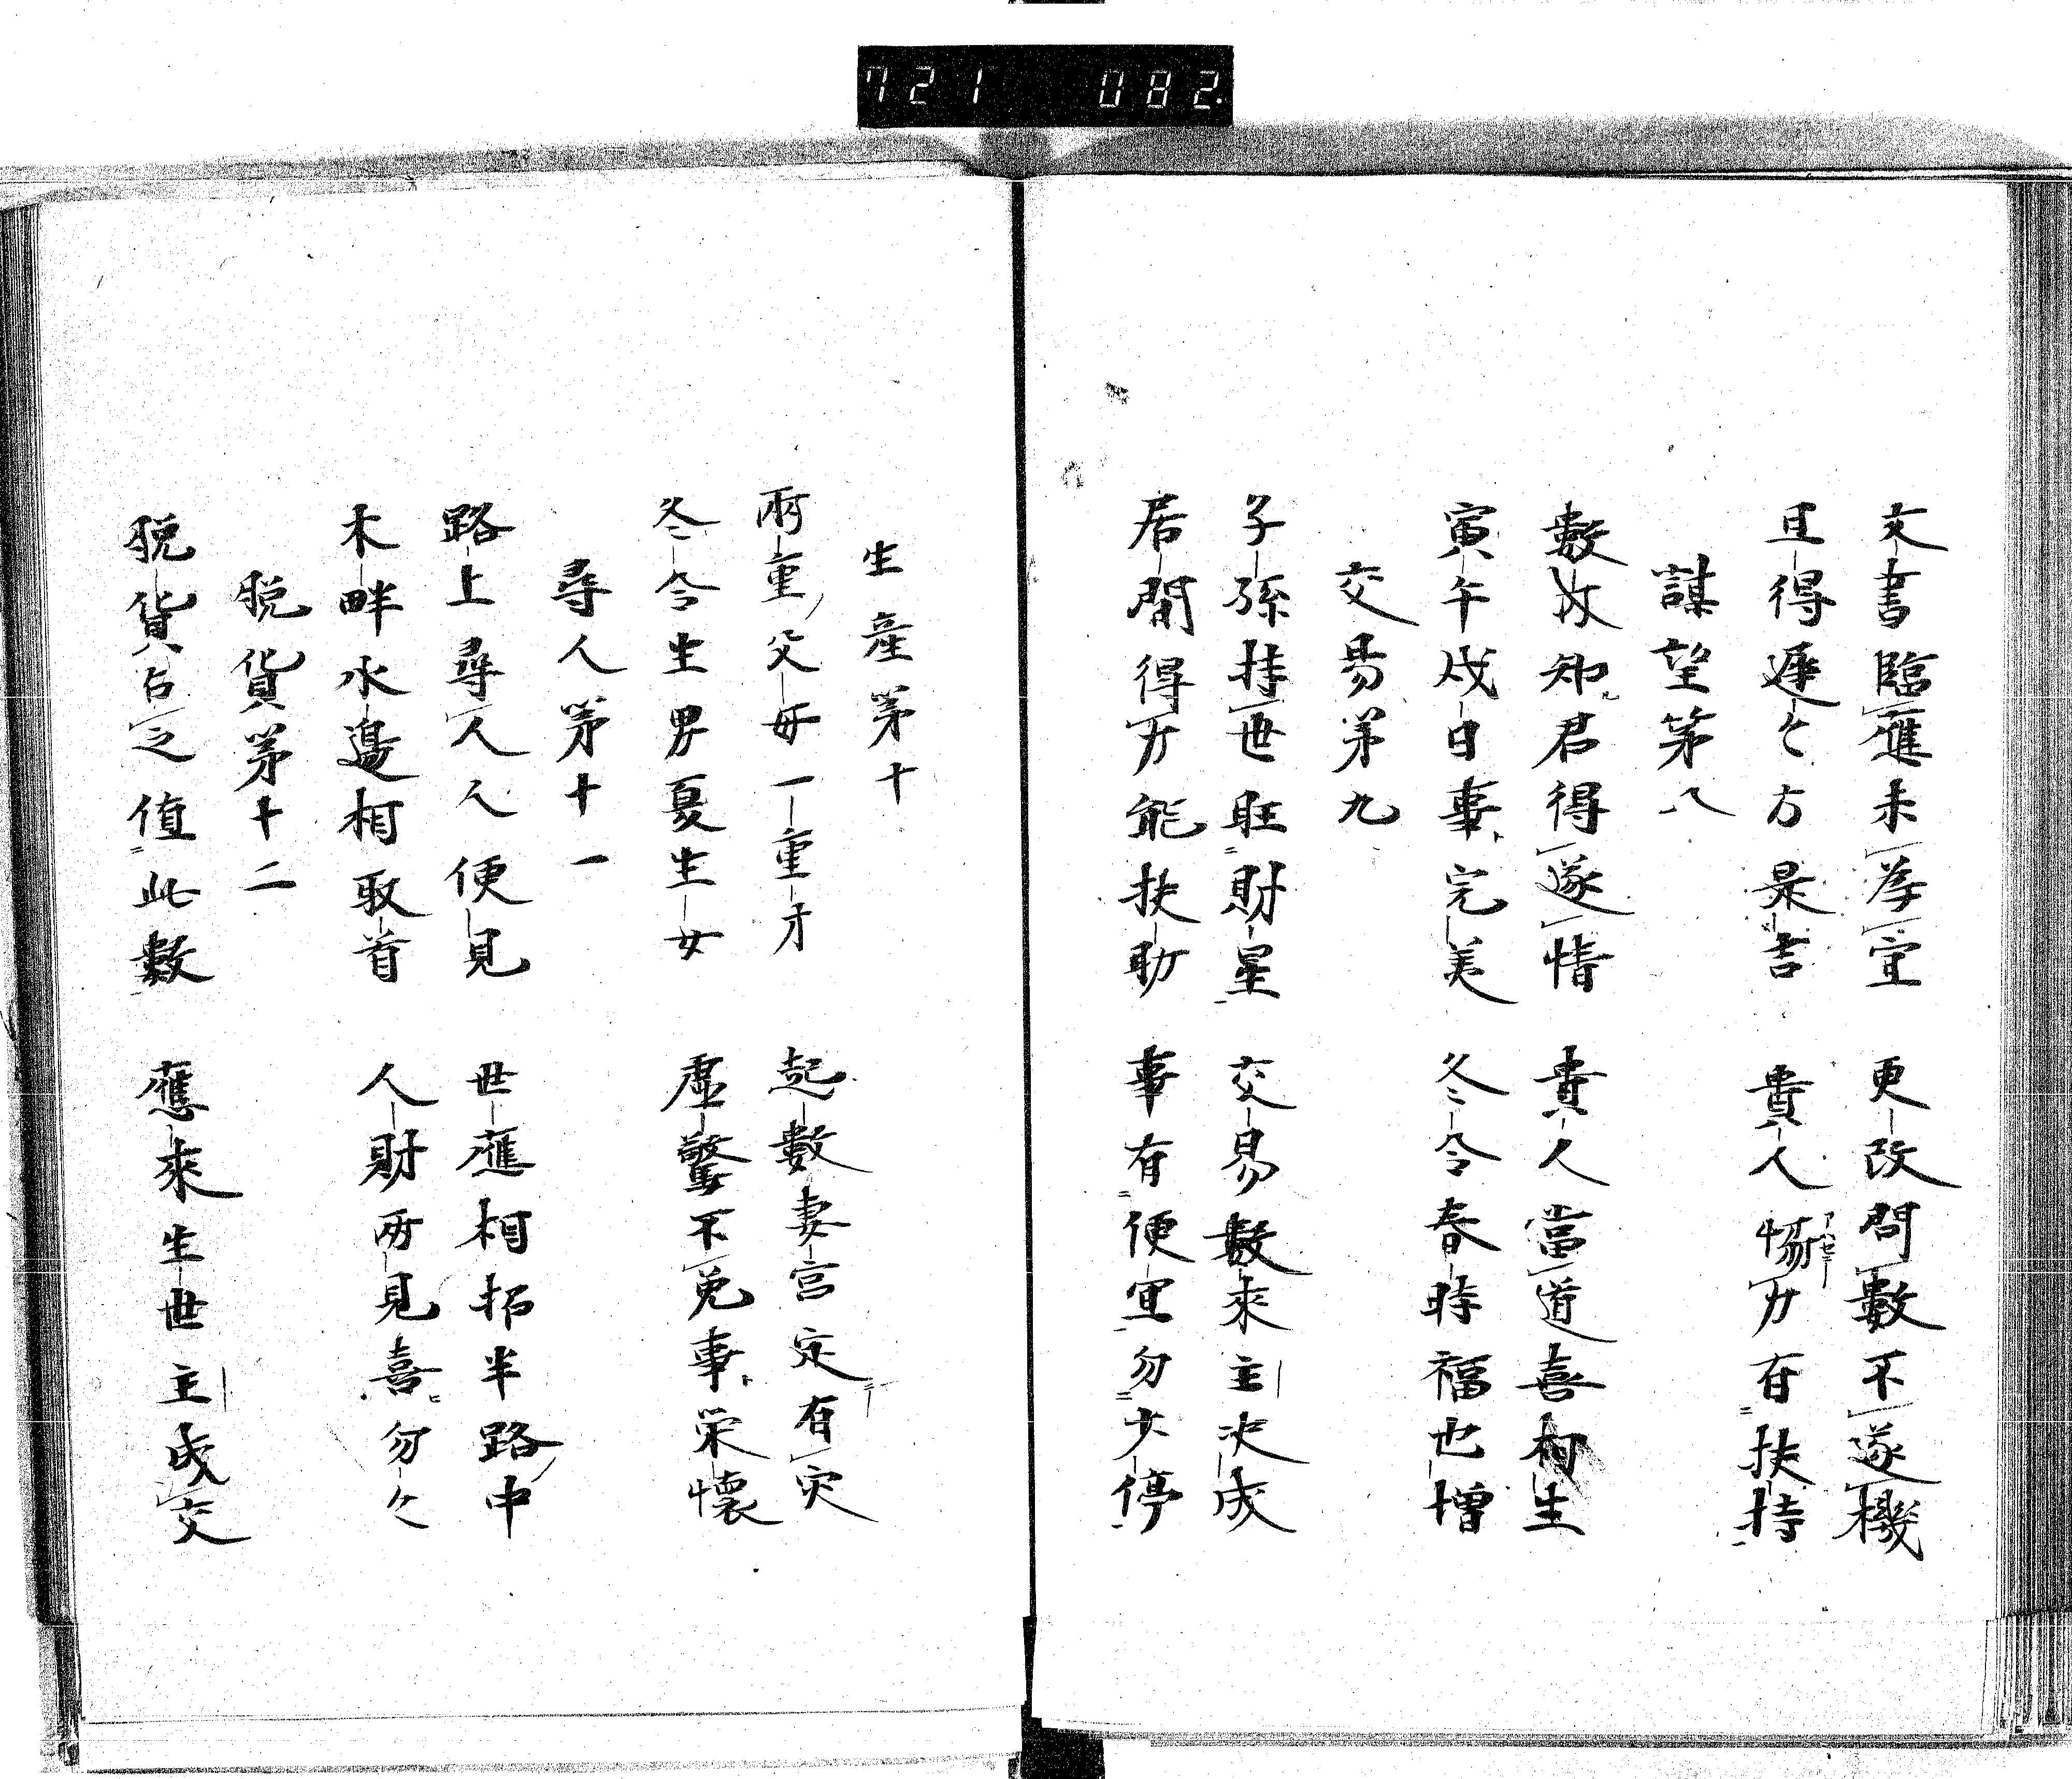 721 082
文書臨應未宜 更改問數不遂機
且得遲々方是吉 貴人惕力有扶持
謀望第八
數次知君得遂情 貴人當道喜相生
寅午戌日事完美 冬令春時福也增
交易第九
子孫持世旺財星 交易數來主決成
居間得力能扶助 事有便宜勿少停
生産第十
兩重父母一重才 起數妻宮定有灾
冬令生男夏生女 虛驚不免事栄懷
尋人第十一
路上尋人人便見 世應相拓半路中
木畔水邊相取首 人財兩見喜勿々
脱貨第十二
脱貨占之值此數 應來生世主成交